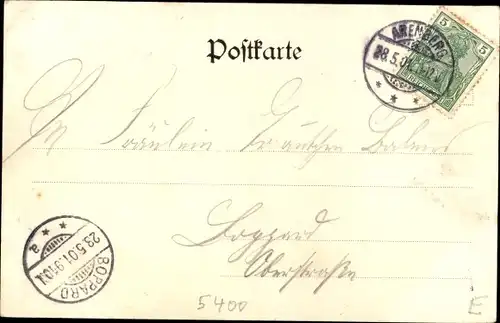 Postkarte
ARENBERG
28.5.01
5 5
Fräulein Gretchen
Boppard
Oberstraße
BOPPARD
28.5.01.9-10N.
* * a
5400
E